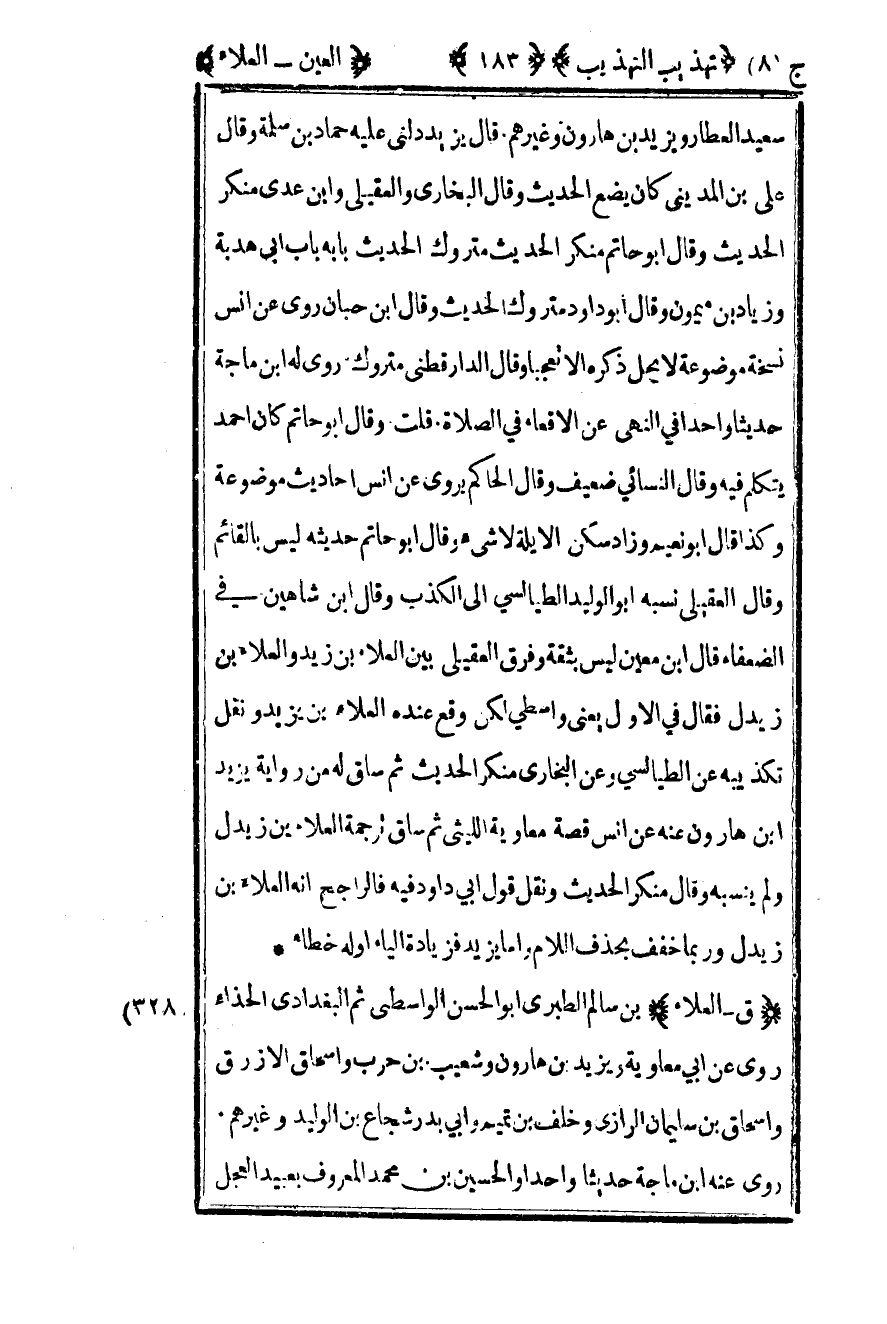 ج (٨) ﴿تهذيب التهذيب﴾ ﴿١٨٣﴾ ﴿العين ـ العلاء﴾
سعيد العطار ويزيد بن هارون وغيرهم. قال يزيد دلني عليه حماد بن سلمة وقال
علي بن المديني كان يضع الحديث وقال البخاري والعقيلي وابن عدي منكر
الحديث وقال ابو حاتم منكر الحديث متروك الحديث بابه باب ابي هدبة
وزياد بن ميمون وقال أبو داود متروك الحديث وقال ابن حبان روى عن انس
نسخة موضوعة لا يحل ذكره الا تعجبا وقال الدارقطني متروك. روى له ابن ماجة
حديثا واحدا في النهي عن الاقعاء في الصلاة. قلت. وقال ابو حاتم كان احمد
يتكلم فيه وقال النسائي ضعيف وقال الحاكم يروي عن انس احاديث موضوعة
وكذا قال ابو نعيم وزاد سكن الايلة لا شيء وقال ابو حاتم حديثه ليس بالقائم
وقال العقيلي نسبه ابو الوليد الطيالسي الى الكذب وقال ابن شاهين في
الضعفاء قال ابن معين ليس بثقة وفرق العقيلي بين العلاء بن زيد والعلاء بن
زيدل فقال في الاول يعني واسطي لكن وقع عنده العلاء بن يزيد ونقل
تكذيبه عن الطيالسي وعن البخاري منكر الحديث ثم ساق له من رواية يزيد
ابن هارون عنه عن انس قصة معاوية الليثي ثم ساق ترجمة العلاء بن زيدل
ولم ينسبه وقال منكر الحديث ونقل قول ابي داود فيه فالراجح انه العلاء بن
زيدل وربما خفف بحذف اللام واما يزيد فزيادة الياء اوله خطاء *
﴿ق ـ العلاء﴾ بن سالم الطبري ابو الحسن الواسطي ثم البغدادي الحذاء (٣٢٨
روى عن ابي معاوية ويزيد بن هارون وشعيب بن حرب واسحاق الازرق
واسحاق بن سليمان الرازي وخلف بن تميم وابي بدر شجاع بن الوليد وغيرهم.
روى عنه ابن ماجة حديثا واحدا والحسين بن محمد المعروف بعبيد العجل